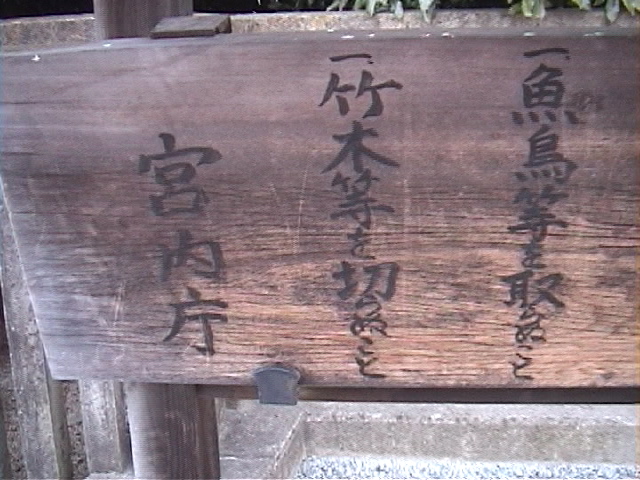 一魚鳥等を取らぬこと
一竹木等を切らぬこと
宮内庁